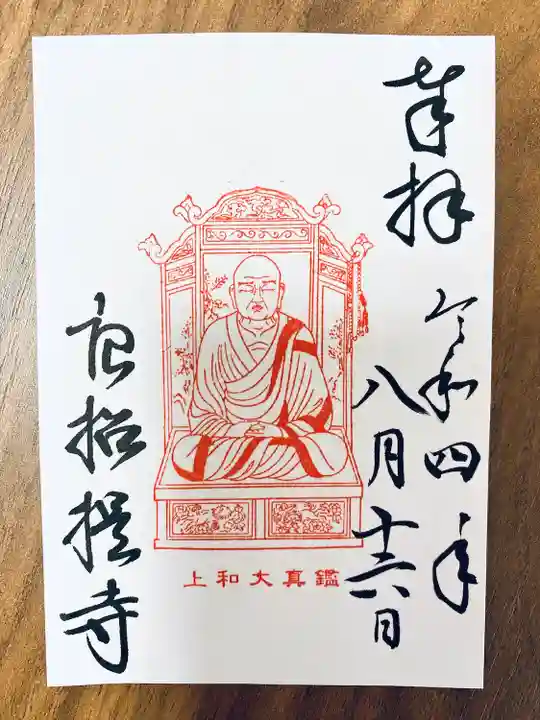 奉拝
令和四年
八月十六日
上和大真鑑
唐招提寺